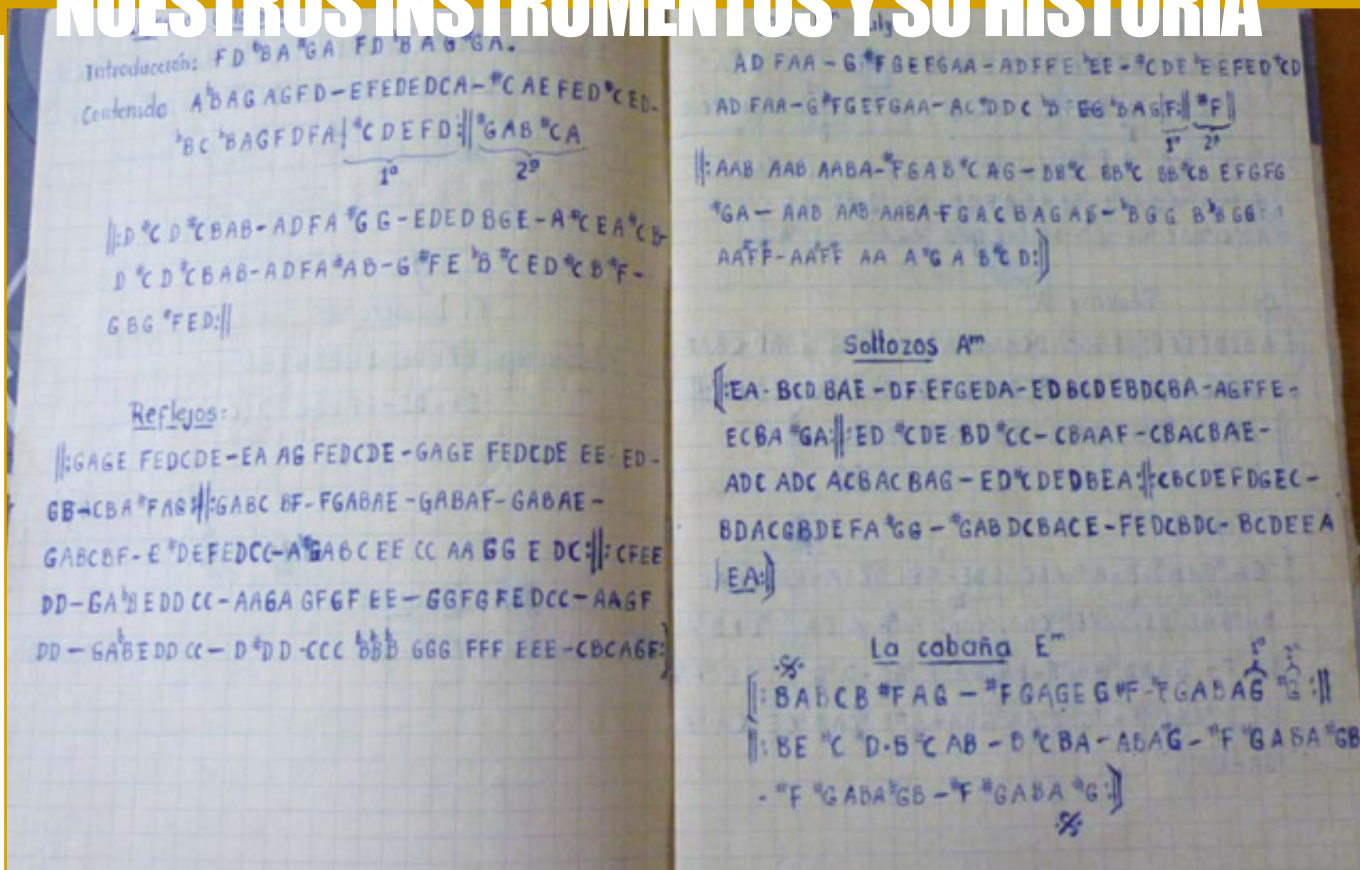 NUESTROS INSTRUMENTOS Y SU HISTORIA
Introducción: FD ᵇBA #GA FD ᵇBAG #GA.
Contenido AᵇBAG AGFD-EFEDEDCA-#CAEFED#CED-
ᵇBCᵇBAGFDFA|#CDEFD:||#GAB#CA
1º 2º
||:D#CD#CBAB-ADFA#GG-EDEDBGE-A#CEA#CB-
D#CD#CBAB-ADFA#AB-G#FEᵇB#CED#CB#F-
GBG#FED:||
Reflejos:
||:GAGE FEDCDE-EA AG FEDCDE-GAGE FEDCDE EE-ED-
GB-CBA#FAG:||:GABC BF-FGABAE-GABAF-GABAE-
GABCBF-E#DEFEDCC-A#GABC EE CC AA GG E DC:||:CFEE
DD-GAᵇBEDD CC-AAGA GFGF EE-GGFGFEDCC-AAGF
DD-GAᵇBEDD CC-D#DD-CCC ᵇBᵇBᵇB GGG FFF EEE-CBCAGF:]
AD FAA-G#FGEFGAA-ADFFEᵇEE-#CDEᵇEEFED#CD
AD FAA-G#FGEFGAA-AC#DDCᵇB-FEGᵇBAG|F:|| #F||
1º 2º
||:AAB AAB AABA-#FGAB#CAG-BB#C BB#C BB#CB EFGFG
#GA-AAB AAB AABA-FGACBAGAG-ᵇBGG BᵇBGG
AAFF-AAFF AA A#GAB#CD:]
Sollozos Aᵐ
[:EA-BCDBAE-DF-EFGEDA-EDBCDEBDCBA-AGFFE-
ECBA#GA:||:ED#CDE BD#CC-CBAAF-CBACBAE-
ADC ADC ACBACBAG-ED#CDEDBEA:||:CBCDEFDGEC-
BDACGBDEFA#GG-#GABDCBACE-FEDCBDC-BCDEEA
|EA:]
La cabaña Eᵐ
[:BABCB#FAG-#FGAGEG#F-#FGABAG #G:||
||:BE#C#D-B#CAB-B#CBA-ABAG-#F#GABA#GB
-#F#GABA#GB-#F#GABA#G:]